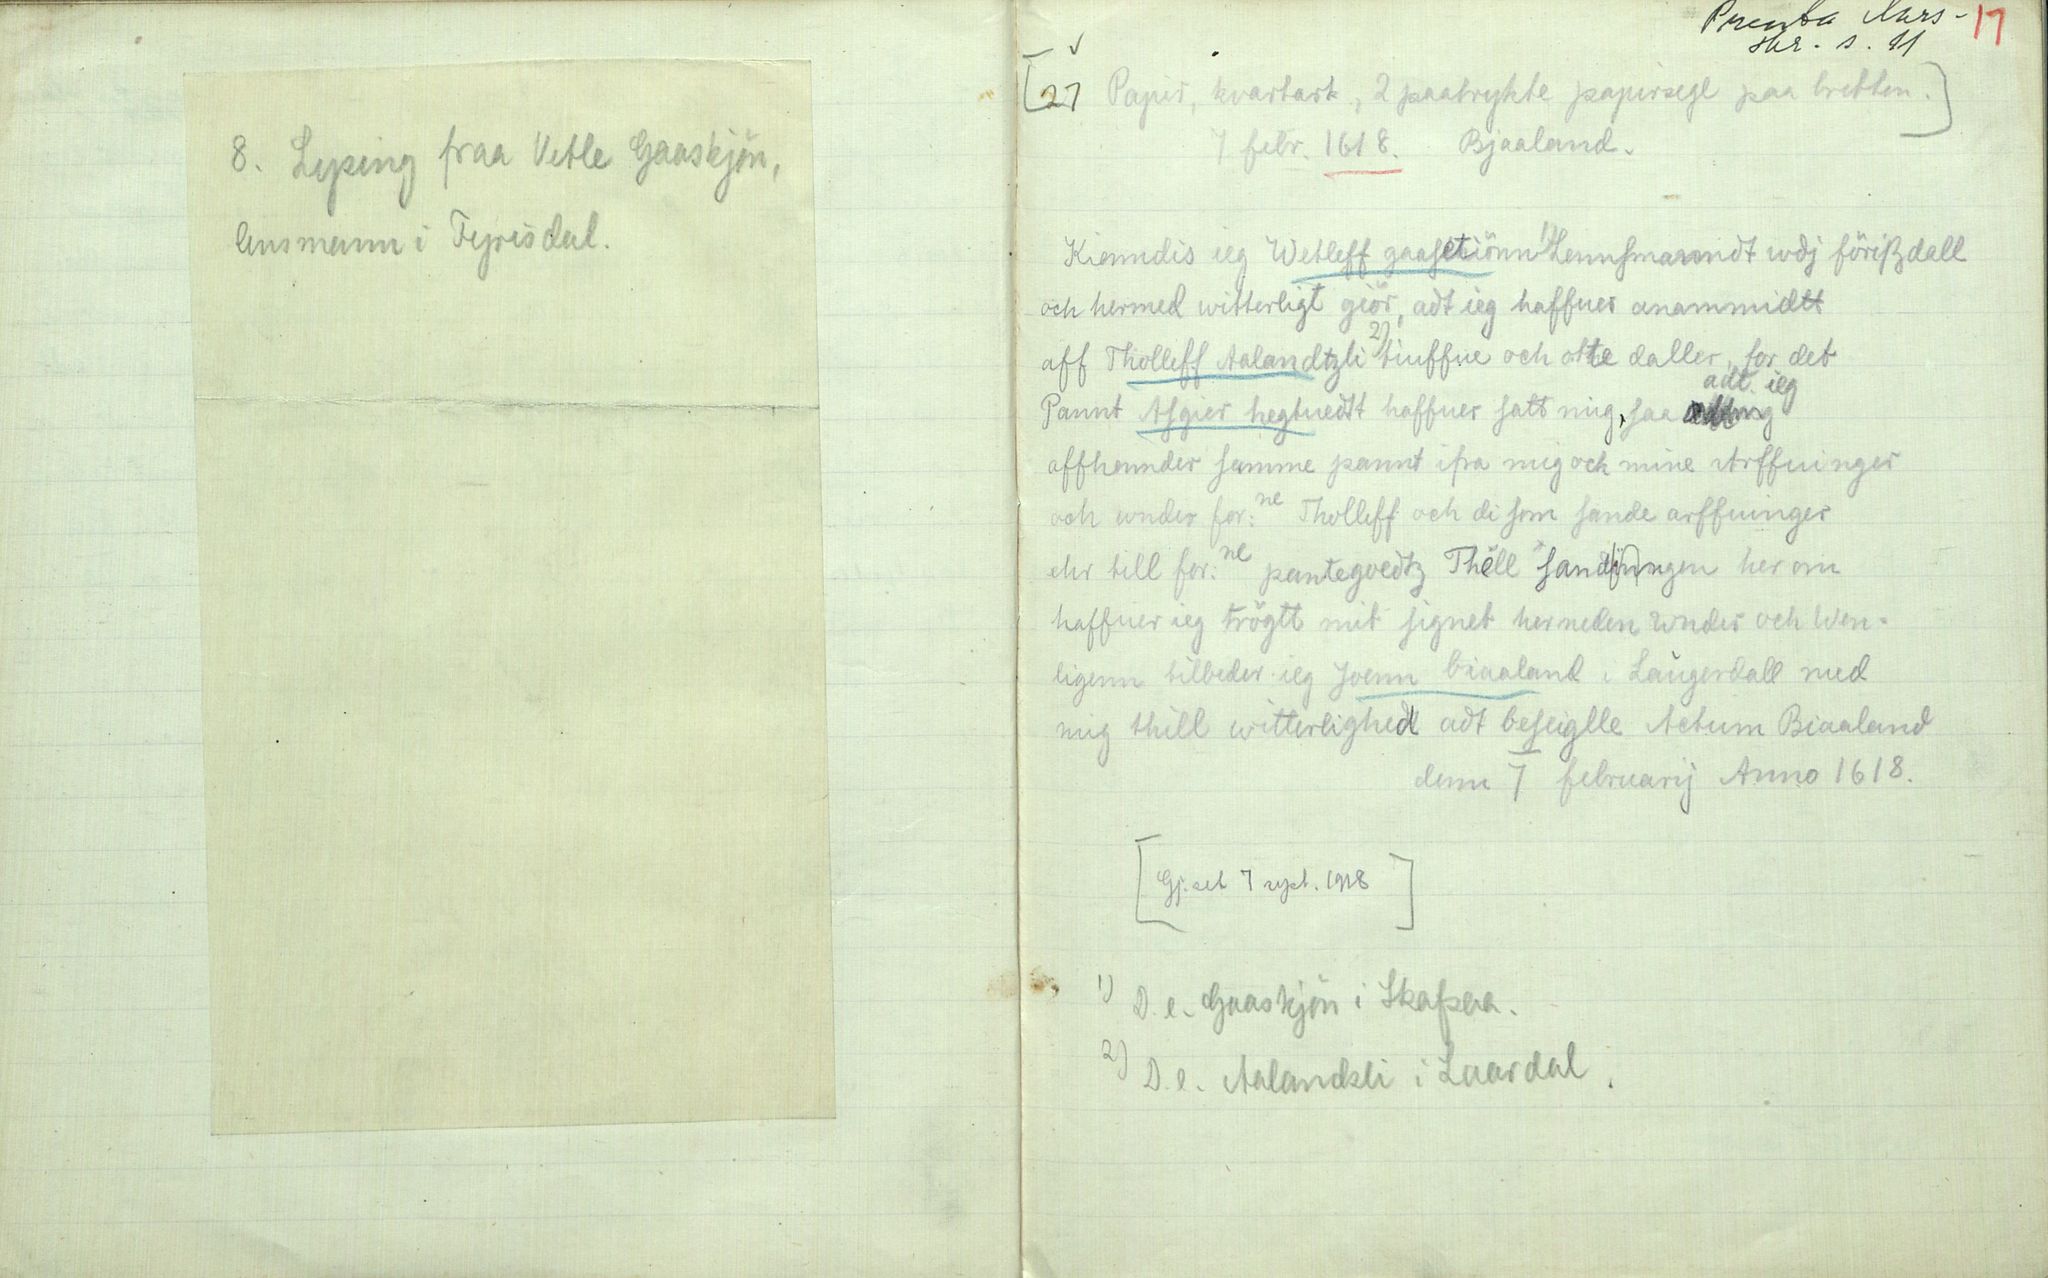 8. Lysing fraa Vetle Gaaskjön,
lensmann i Fyrisdal.
Prenta Aars-
skr. s. 41
17
[27 Papir, kvartark, 2 paatrykte papirsegl paa bretten.]
7 febr. 1618. Bjaaland.
Kienndis ieg Wetleff gaasetiönn 1) Lennsmanndt wdj förißdall
och hermed witterligt giör, adt ieg haffuer anammidtt
aff Tholleff Aalandtzli 2) tiuffue och otte daller, for det
Pannt Asgier hegtuedtt haffuer satt mig, saa adt ieg
affhennder samme pannt ifra mig och mine Arffuinger
och under for:ne Tholleff och di som sande arffuinger
ehr till for:ne pantegoedtz Thëll sandfingen her om
haffuer ieg trögtt mit signet herneden under och Wen-
ligenn tilbeder ieg Joenn biaaland i Laugerdall med
mig thill witterlighed adt beseiglle Actum Biaaland
denn 7 februarij Anno 1618.
[Gj. set 7 sept. 1918]
1) D. e. Gaaskjön i Skafsaa.
2) D. e. Aalandsli i Laardal.